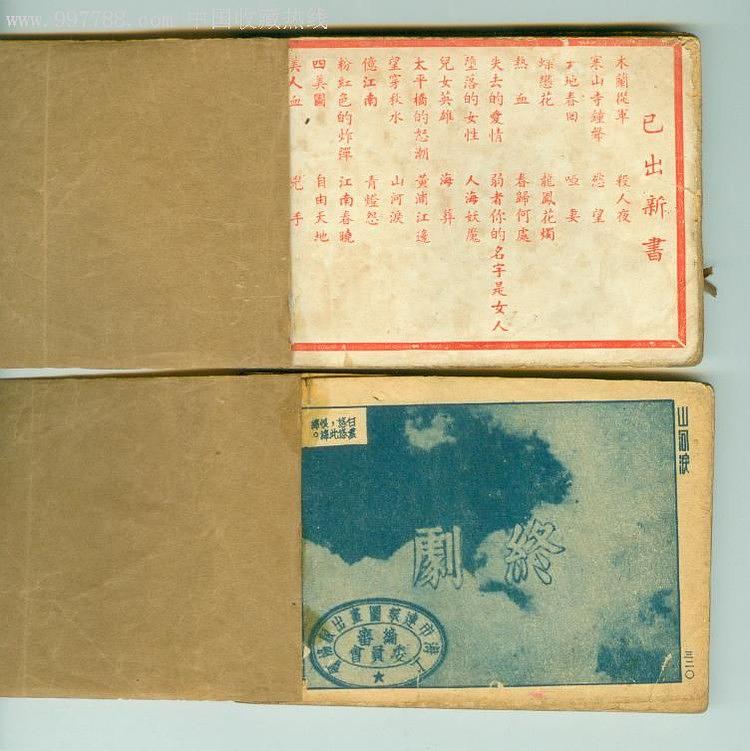 www.997788.com 中国收藏热线
已出新書
木蘭從軍 殺人夜
寒山寺鐘聲 慾望
地春回 啞妻
蝶戀花 龍鳳花燭
熱血 春歸何處
失去的愛情 弱者你的名字是女人
墮落的女性 人海妖魔
兒女英雄 海葬
太平橋的怒潮 黃浦江邊
望穿秋水 山河淚
憶江南 青燈怨
粉紅色的炸彈 江南春曉
四美圖 自由天地
美人血 兇手
山河淚
三二〇
終劇
上海市連環圖畫出版協會
編審
委員會